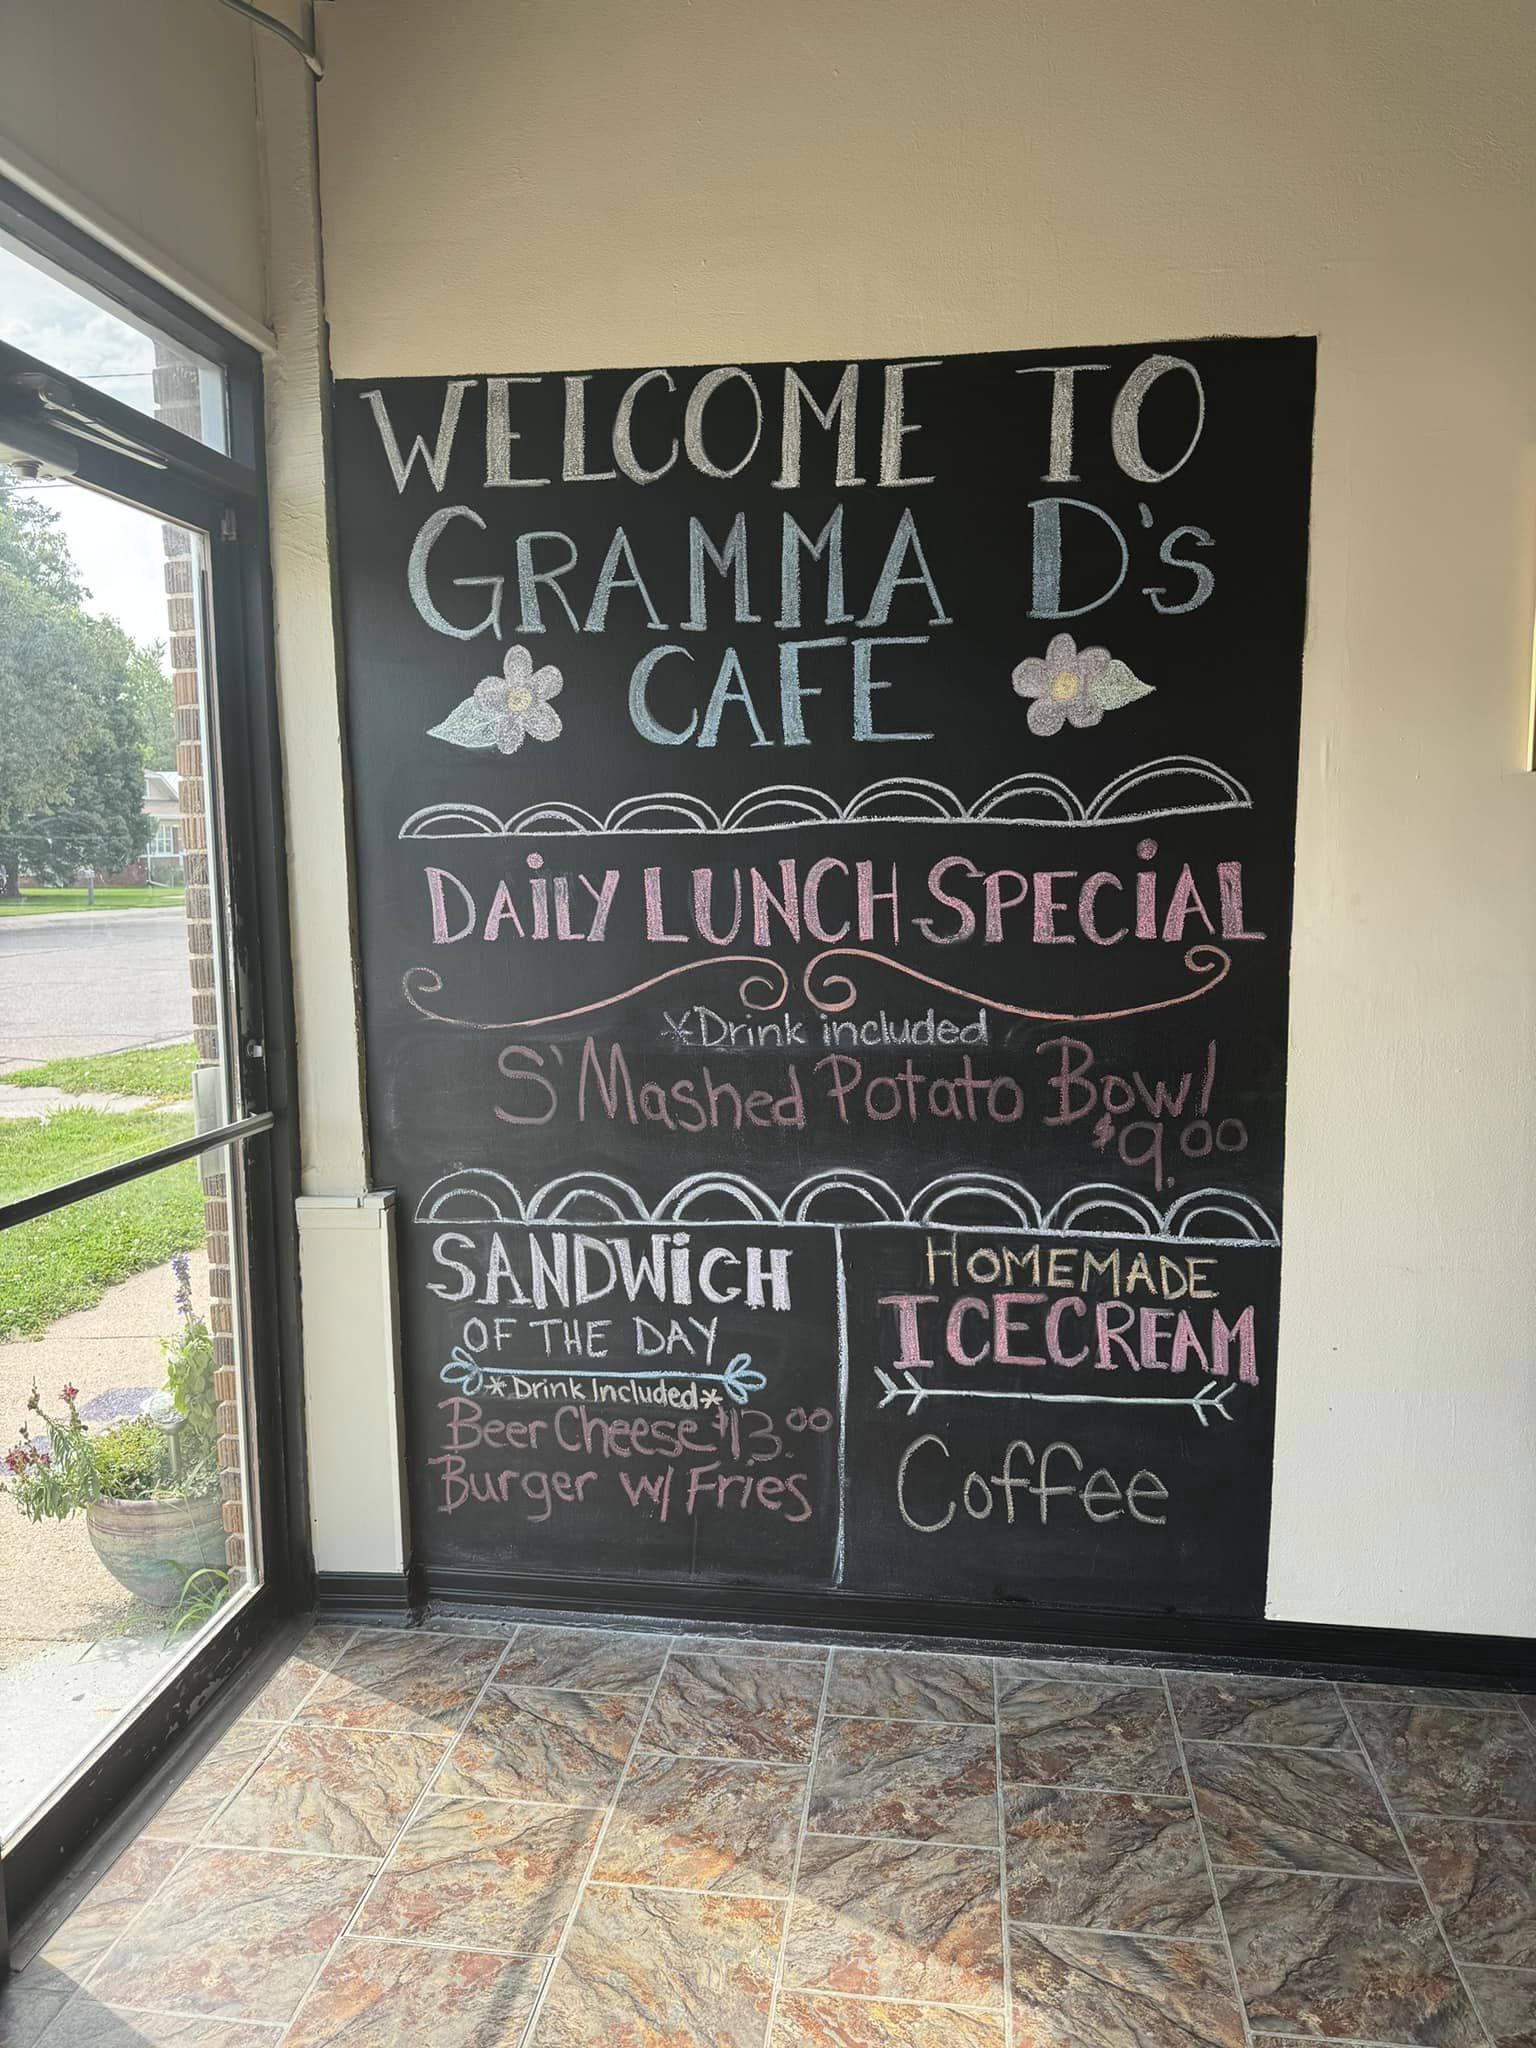 WELCOME TO
GRAMMA D's
CAFE
DAiLY LUNCH SPECiAL
*Drink included
S'Mashed Potato Bowl
$9.00
SANDWiCH
OF THE DAY
*Drink Included*
Beer Cheese $13.00
Burger w/ Fries
HOMEMADE
ICECREAM
Coffee